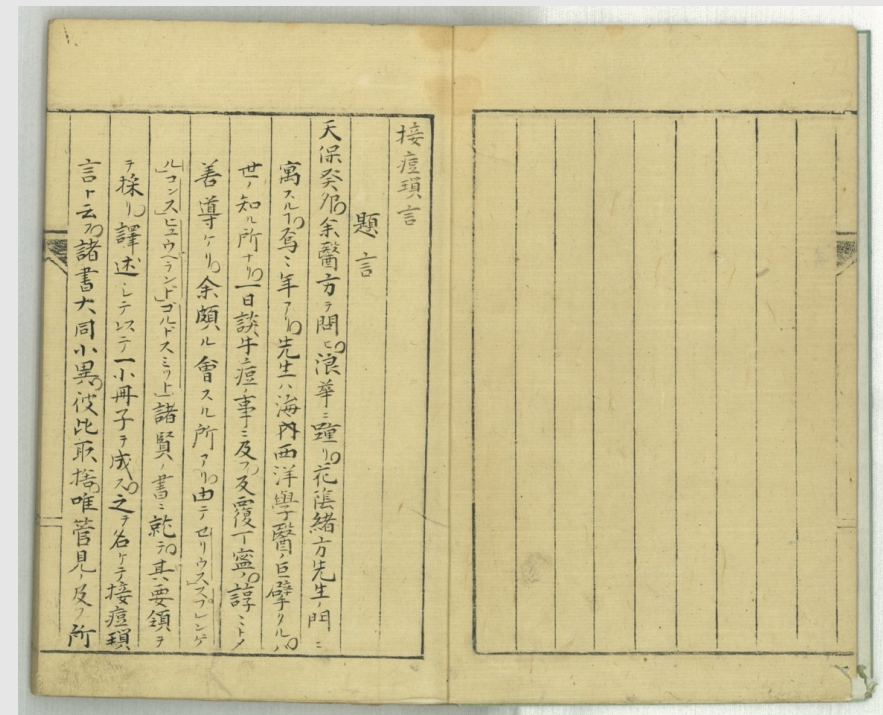 接痘瑣言
題言
天保癸卯余醫方ヲ問ヒ浪華ニ踵リ花蔭緒方先生ノ門ニ
寓スルコ爰ニ年アリ先生ハ海内西洋學醫ノ巨擘タルハ
世ノ知ル所ナリ一日談牛痘ノ事ニ及フ反覆丁寧ノ諄ミトメ
善導ケリ余頗ル會スル所アリ由テセリウススプレンゲ
ルコンスヒュウヘランドゴルドスミット諸賢ノ書ニ就テ其要領ヲ
ヲ採リ譯述シテ一小冊子ヲ成ス之ヲ名ケテ接痘瑣
言ト云フ諸書大同小異彼比取捨唯管見ノ及フ所